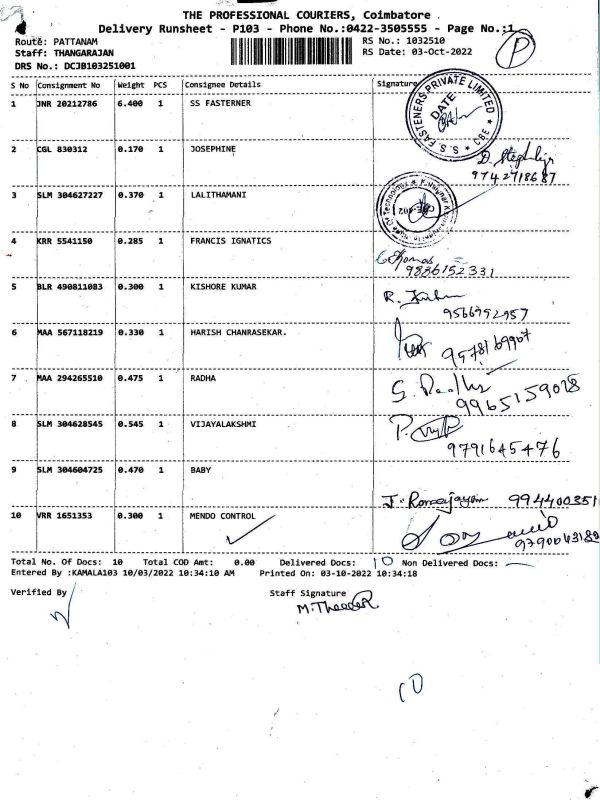 THE PROFESSIONAL COURIERS, Coimbatore .
Delivery Runsheet - P103 - Phone No.:0422-3505555 - Page No.:1
Route: PATTANAM RS No.: 1032510 P
Staff: THANGARAJAN RS Date: 03-Oct-2022
DRS No.: DCJB103251001
S No Consignment No Weight PCS Consignee Details Signature
1 JNR 20212786 6.400 1 SS FASTERNER
S.S. FASTENERS PRIVATE LIMITED DATE
2 CGL 830312 0.170 1 JOSEPHINE
9742718687
3 SLM 304627227 0.370 1 LALITHAMANI
4 KRR 5541150 0.285 1 FRANCIS IGNATICS
9886152331
5 BLR 490811083 0.300 1 KISHORE KUMAR
R.
9566952957
6 MAA 567118219 0.330 1 HARISH CHANRASEKAR.
7 MAA 294265510 0.475 1 RADHA
S. Radha
9965159028
8 SLM 304628545 0.545 1 VIJAYALAKSHMI
P.
9791645476
9 SLM 304604725 0.470 1 BABY
994400351
10 VRR 1651353 0.300 1 MENDO CONTROL
Total No. Of Docs: 10 Total COD Amt: 0.00 Delivered Docs: 10 Non Delivered Docs: —
Entered By :KAMALA103 10/03/2022 10:34:10 AM Printed On: 03-10-2022 10:34:18
Verified By Staff Signature
10